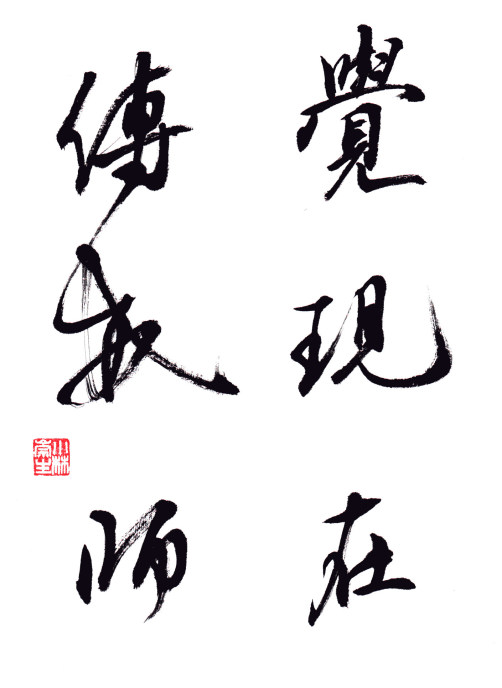 覺現在
傳教師
小林